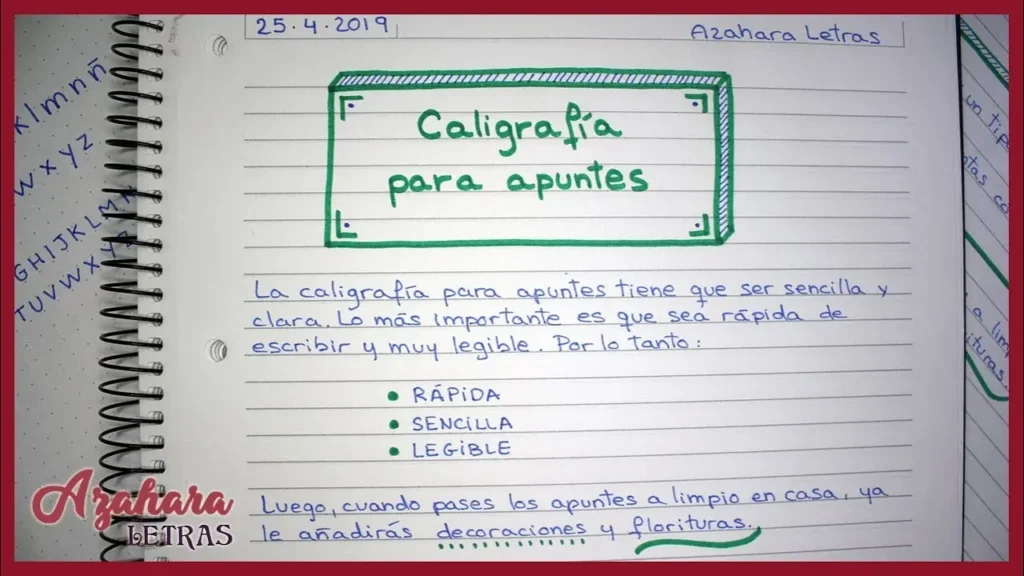 25.4.2019
Azahara Letras
Caligrafía
para apuntes
La caligrafía para apuntes tiene que ser sencilla y
clara. Lo más importante es que sea rápida de
escribir y muy legible. Por lo tanto:
• RÁPIDA
• SENCILLA
• LEGIBLE
Luego, cuando pases los apuntes a limpio en casa, ya
le añadirás decoraciones y florituras.
k l m n ñ
w x y z
G H I J K L M
T U V W X Y
un tip
a lim
ituras.
Azahara
LETRAS